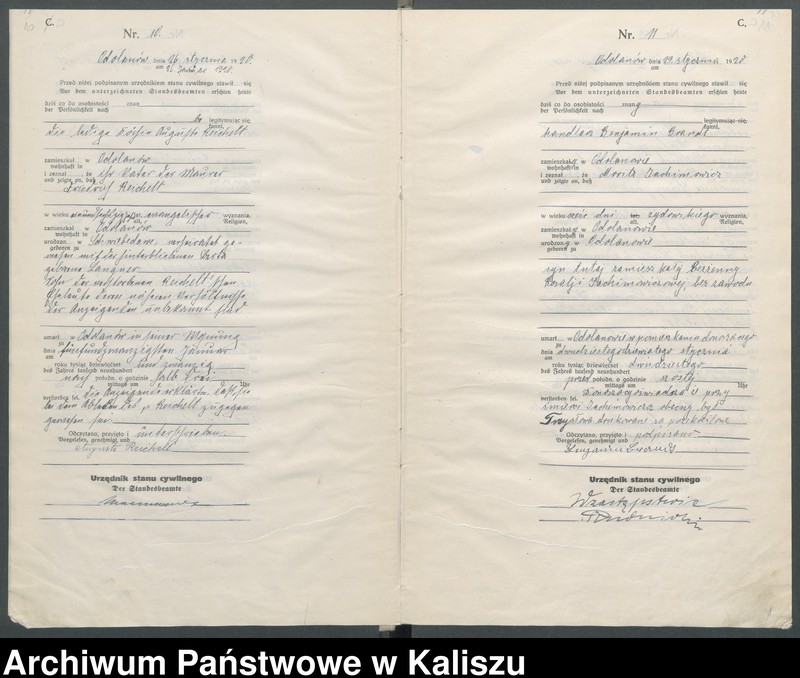 C.
Nr. 10.
Odolanów, dnia 26. stycznia 1920.
am 26. 1920.
Przed niżej podpisanym urzędnikiem stanu cywilnego stawił się
Vor dem unterzeichneten Standesbeamten erschien heute
dziś co do osobistości znan
der Persönlichkeit nach
legitymując się
kannt,
die ledige Auguste Reichelt
zamieszkał w Odolanów
wohnhaft in
i zeznał że ihr Vater der Maurer
und zeigte an, daß
Friedrich Reichelt
w wieku lat, evangelischer wyznania,
alt, Religion,
zamieszkał w Odolanów
wohnhaft in
urodzon w verheiratet ge-
geboren zu
wesen mit der hinterbliebenen
geborene Langner
Sohn der verstorbenen Reichelt'schen
Eheleute deren näheren Verhältnisse
der Anzeigenden unbekannt sind
umarł w Odolanów in seiner Wohnung
zu
dnia fünfundzwanzigsten Januar
am
roku tysiąc dziewięćset und zwanzig
des Jahres tausend neunhundert
nach połudn. o godzinie halb drei
mittags um Uhr
verstorben sei. Die Anzeigende erklärte, daß sie
bei dem Ableben des p. Reichelt zugegen
gewesen sei.
Odczytano, przyjęto i unterschrieben.
Vorgelesen, genehmigt, und
Auguste Reichelt
Urzędnik stanu cywilnego
Der Standesbeamte
C.
Nr. 11
Odolanów dnia 29. stycznia 1920.
am
Przed niżej podpisanym urzędnikiem stanu cywilnego stawił się
Vor dem unterzeichneten Standesbeamten erschien heute
dziś co do osobistości znany
der Persönlichkeit nach
legitymując się
kannt,
handlarz Benjamin Brandt
zamieszkał w Odolanowie
wohnhaft in
i zeznał że Moritz Joachimowicz
und zeigte an, daß
w wieku sześć dni lat, żydowskiego wyznania,
alt, Religion,
zamieszkał w Odolanowie
wohnhaft in
urodzony w Odolanowie
geboren zu
syn tutaj zamieszkałej
Rozalji Joachimowiczowej, bez zawodu
umarł w Odolanowie w pomieszkaniu
zu
dnia dwudziestego stycznia
am
roku tysiąc dziewięćset dwudziestego
des Jahres tausend neunhundert
przed połudn. o godzinie szóstej
mittags um Uhr
verstorben sei. przy
śmierci Joachimowicza obecny był
drukowane są przekreślone
Odczytano, przyjęto i podpisano
Vorgelesen, genehmigt und
Benjamin Brandt
Urzędnik stanu cywilnego
Der Standesbeamte
W zastępstwie
Archiwum Państwowe w Kaliszu